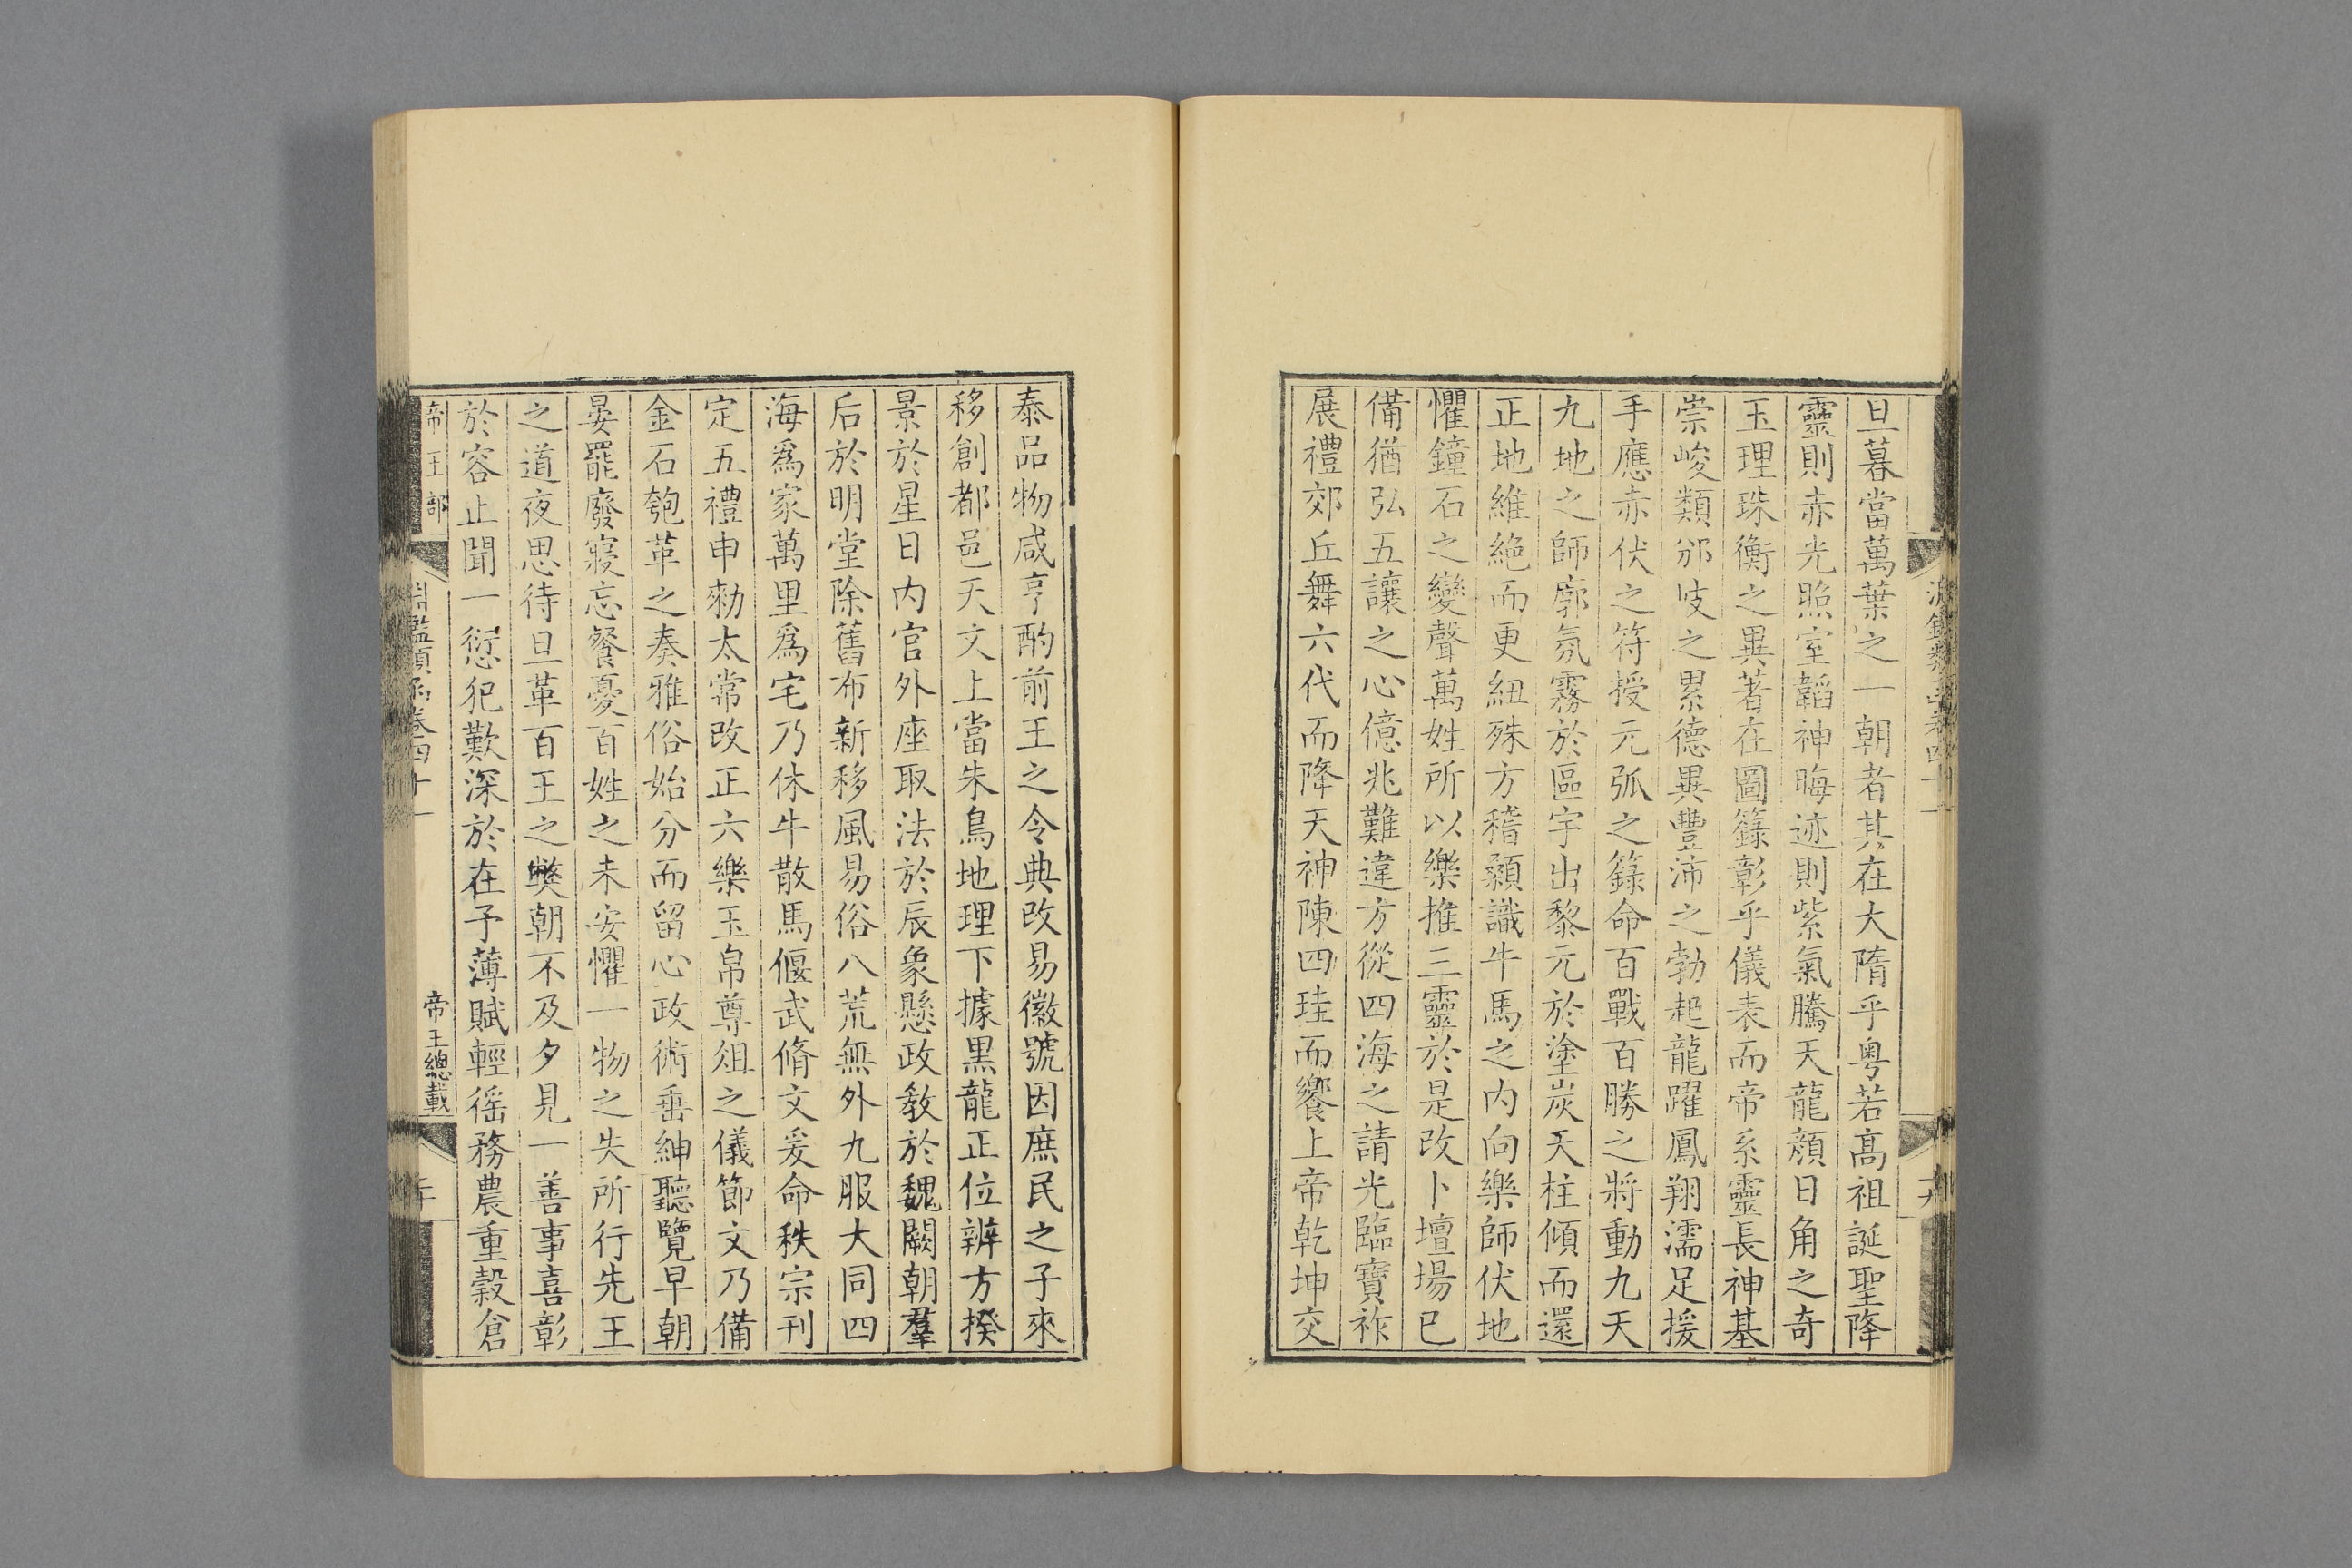 旦暮當萬葉之一朝者其在大隋乎粤若髙祖誕聖降
靈則赤光照室韜神晦迹則紫氣騰天龍顔日角之奇
玉理珠衡之異著在圖籙彰乎儀表而帝系靈長神基
崇峻類邠岐之累德異豐沛之勃起龍躍鳳翔濡足援
手應赤伏之符授元弧之籙命百戰百勝之將動九天
九地之師廓氛霧於區宇出黎元於塗炭天柱傾而還
正地維絶而更紐殊方稽顙識牛馬之内向樂師伏地
懼鐘石之變聲萬姓所以樂推三靈於是改卜壇場已
備猶弘五讓之心億兆難違方從四海之請光臨寶祚
展禮郊丘舞六代而降天神陳四珪而饗上帝乾坤交
泰品物咸亨酌前王之令典改易徽號因庶民之子來
移創都邑天文上當朱鳥地理下據黒龍正位辨方揆
景於星日内官外座取法於辰象懸政教於魏闕朝羣
后於明堂除舊布新移風易俗八荒無外九服大同四
海爲家萬里爲宅乃休牛散馬偃武脩文爰命秩宗刊
定五禮申勑太常改正六樂玉帛尊俎之儀節文乃備
金石匏革之奏雅俗始分而留心政術垂紳聽覽早朝
晏罷廢寢忘餐憂百姓之未安懼一物之失所行先王
之道夜思待旦革百王之弊朝不及夕見一善事喜彰
於容止聞一愆犯歎深於在予薄賦輕徭務農重穀倉
帝王部
淵鑑類函卷四十一
帝王總載